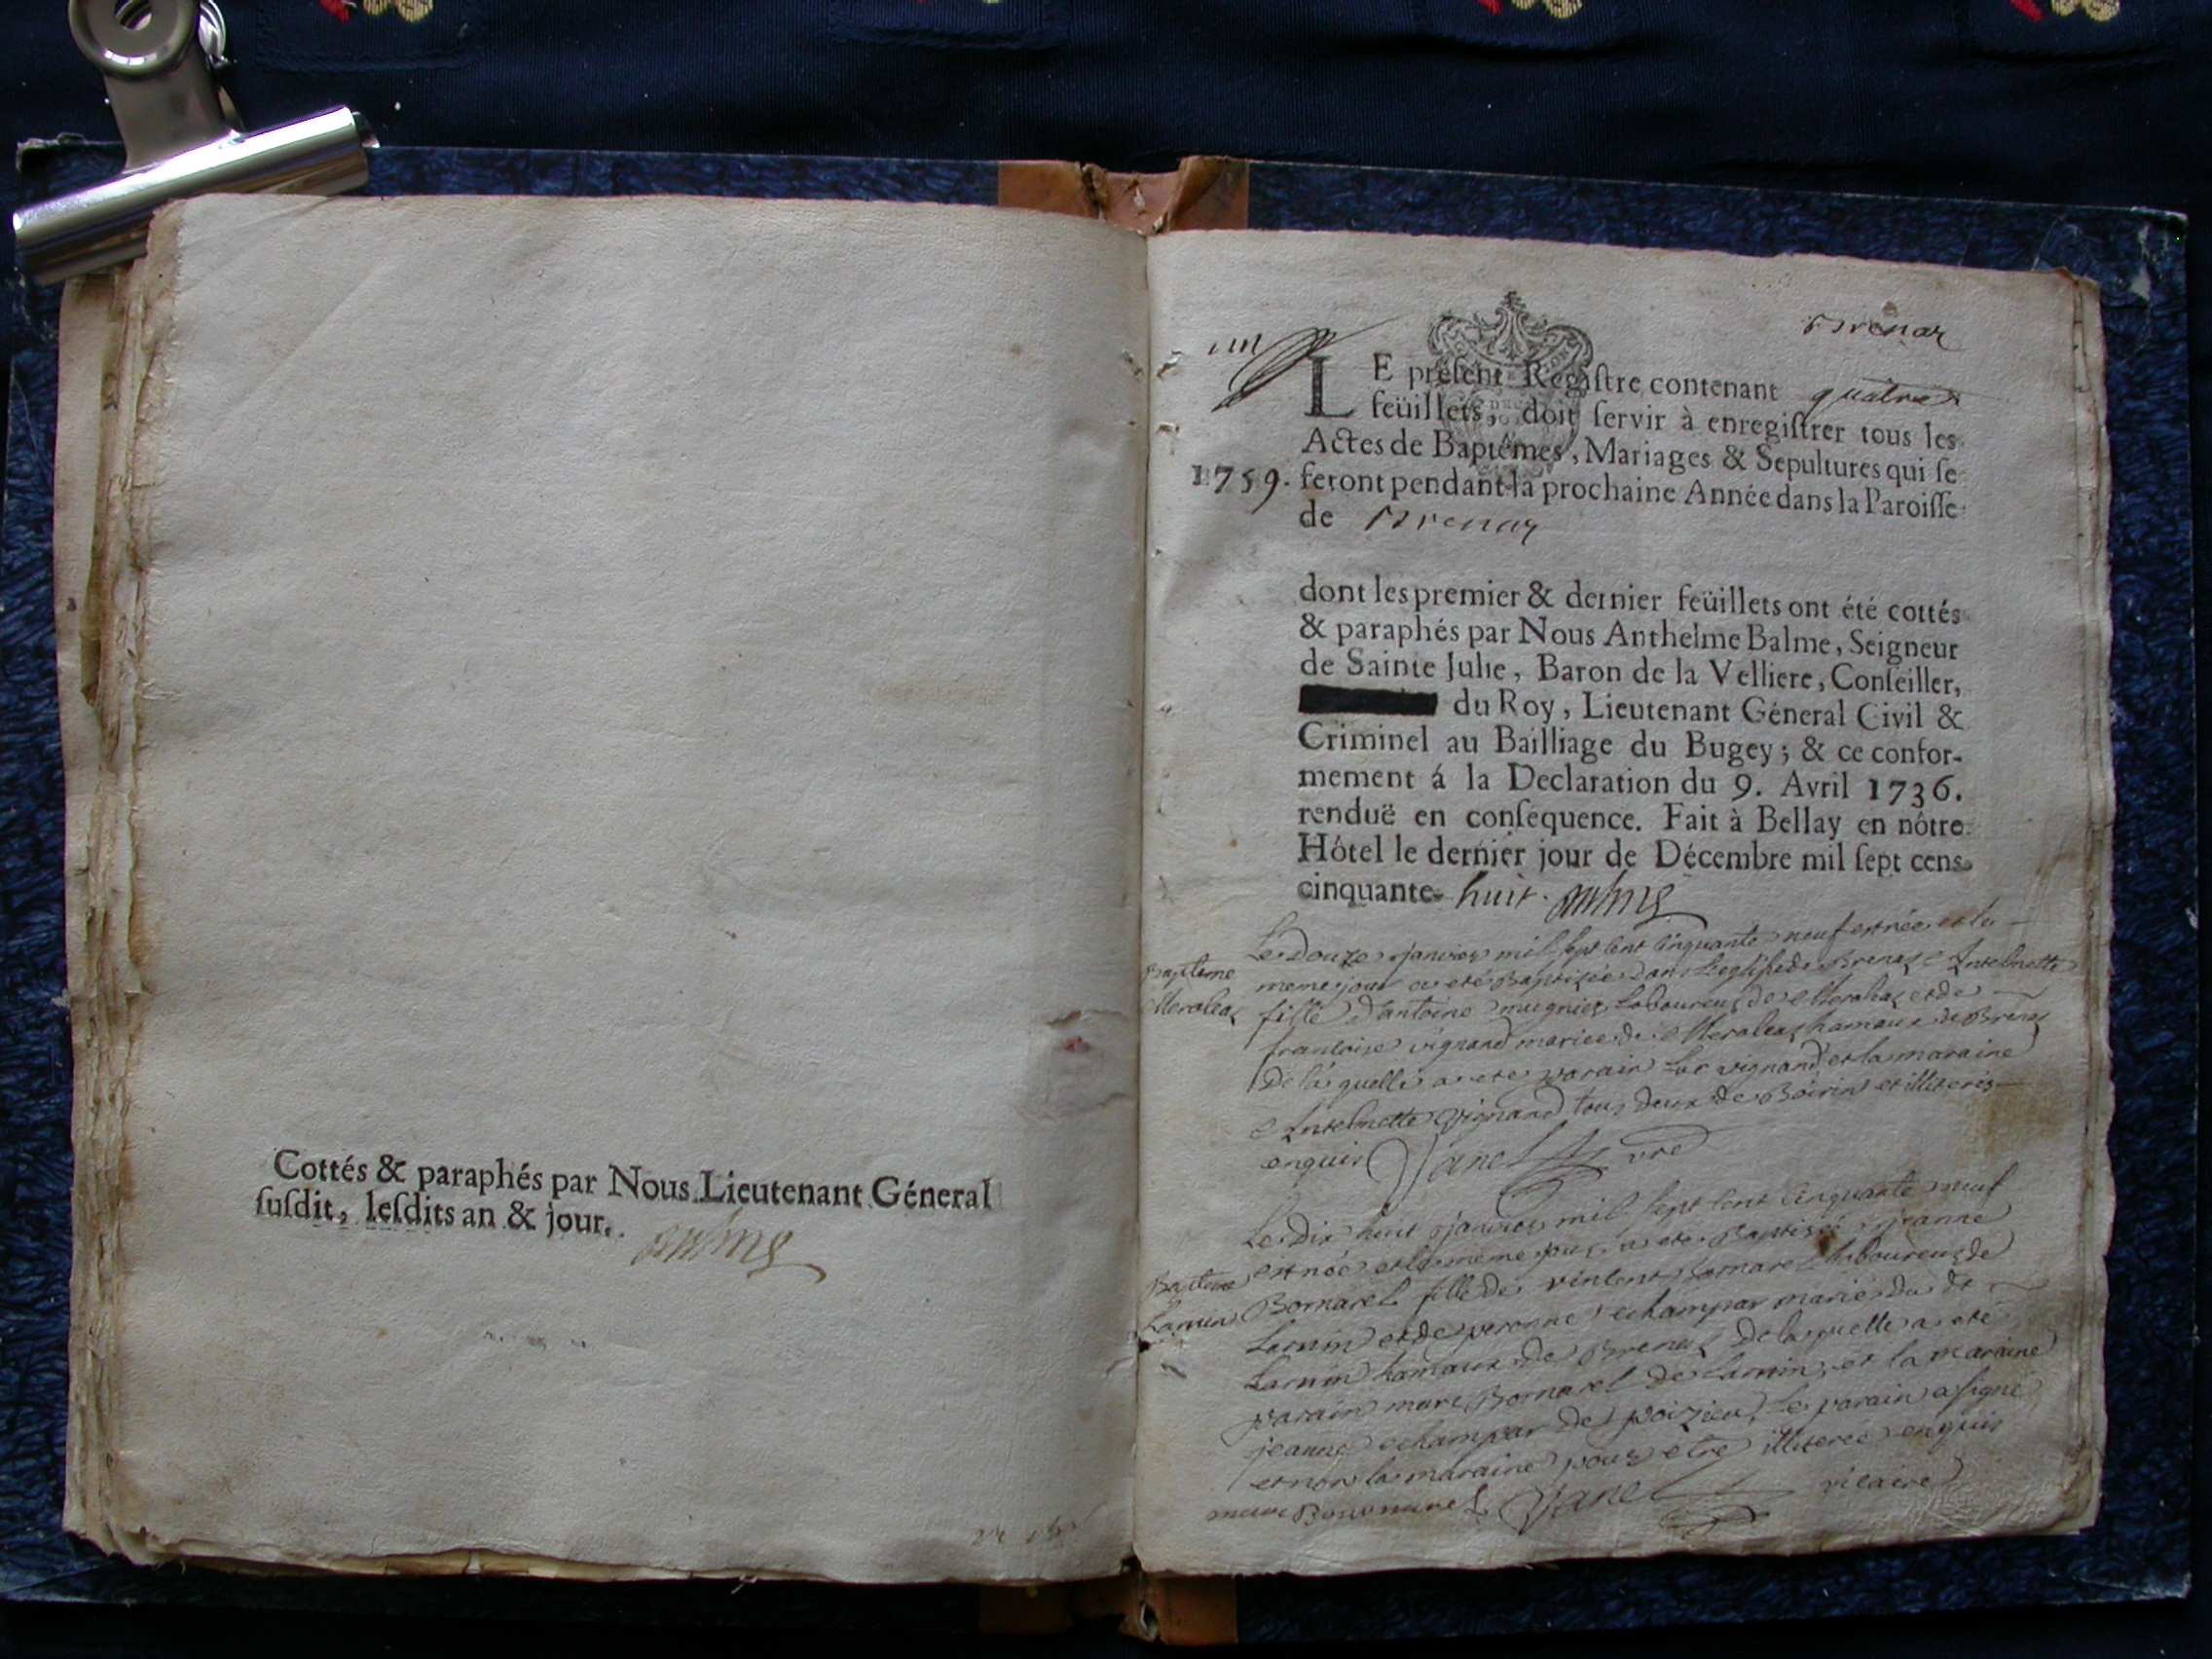 Cottés & paraphés par Nous Lieutenant Géneral
ſuſdit, leſdits an & jour.
Brenaz
un
LE préſent Regiſtre contenant quatre
feüillets, doit ſervir à enregiſtrer tous les
Actes de Baptêmes, Mariages & Sepultures qui ſe
1759. feront pendant la prochaine Année dans la Paroiſſe
de Brenaz
dont les premier & dernier feüillets ont été cottés
& paraphés par Nous Anthelme Balme, Seigneur
de Sainte Julie, Baron de la Velliere, Conſeiller,
du Roy, Lieutenant Géneral Civil &
Criminel au Bailliage du Bugey; & ce confor-
mement á la Declaration du 9. Avril 1736.
renduë en conſequence. Fait à Bellay en nôtre
Hôtel le dernier jour de Décembre mil ſept cens
cinquante huit.
Le Douze janvier mil sept cent cinquante neuf est née et le
Baptême
meme jour a eté Baptisée dans l'eglise de Brenaz Antelmette
Meraleaz
fille d'antoine mugnier Laboureur de Meraleaz et de
francoise vignand mariée de Meraleaz hamaux de Brenaz
De laquelle a ete parain vignand et la maraine
Antelmette vignand tous deux de et illiterés
enquis Vanel
Le Dix huit janvier mil sept cent cinquante neuf
Baptême
est née et le meme jour a ete Baptisée jeanne
Lamin
Bornarel fille de vincent Bornarel Laboureur de
Lamin et de peronne echampar mariée du dt
Lamin hamaux de Brenaz De laquelle a eté
parain marc Bornarel de Lamin et la maraine
jeanne echampar de poizieu, le parain a signé
et non la maraine pour etre illiterée enquis
Vanel vicaire